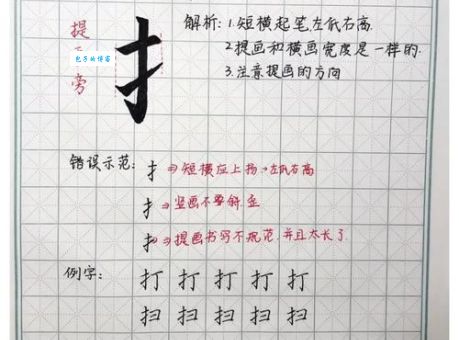 提
旁
包子的博客
扌
解析: 1.短横起笔,左低右高.
2.提画和横画宽度是一样的.
3.注意提画的方向
错误示范: 扌⇒短横应上扬→左低右高
扌⇒竖画不要斜.歪
扌⇒提画书写不规范.并且太长了.
例字: 打 打 打 打 打
扫 扫 扫 扫 扫